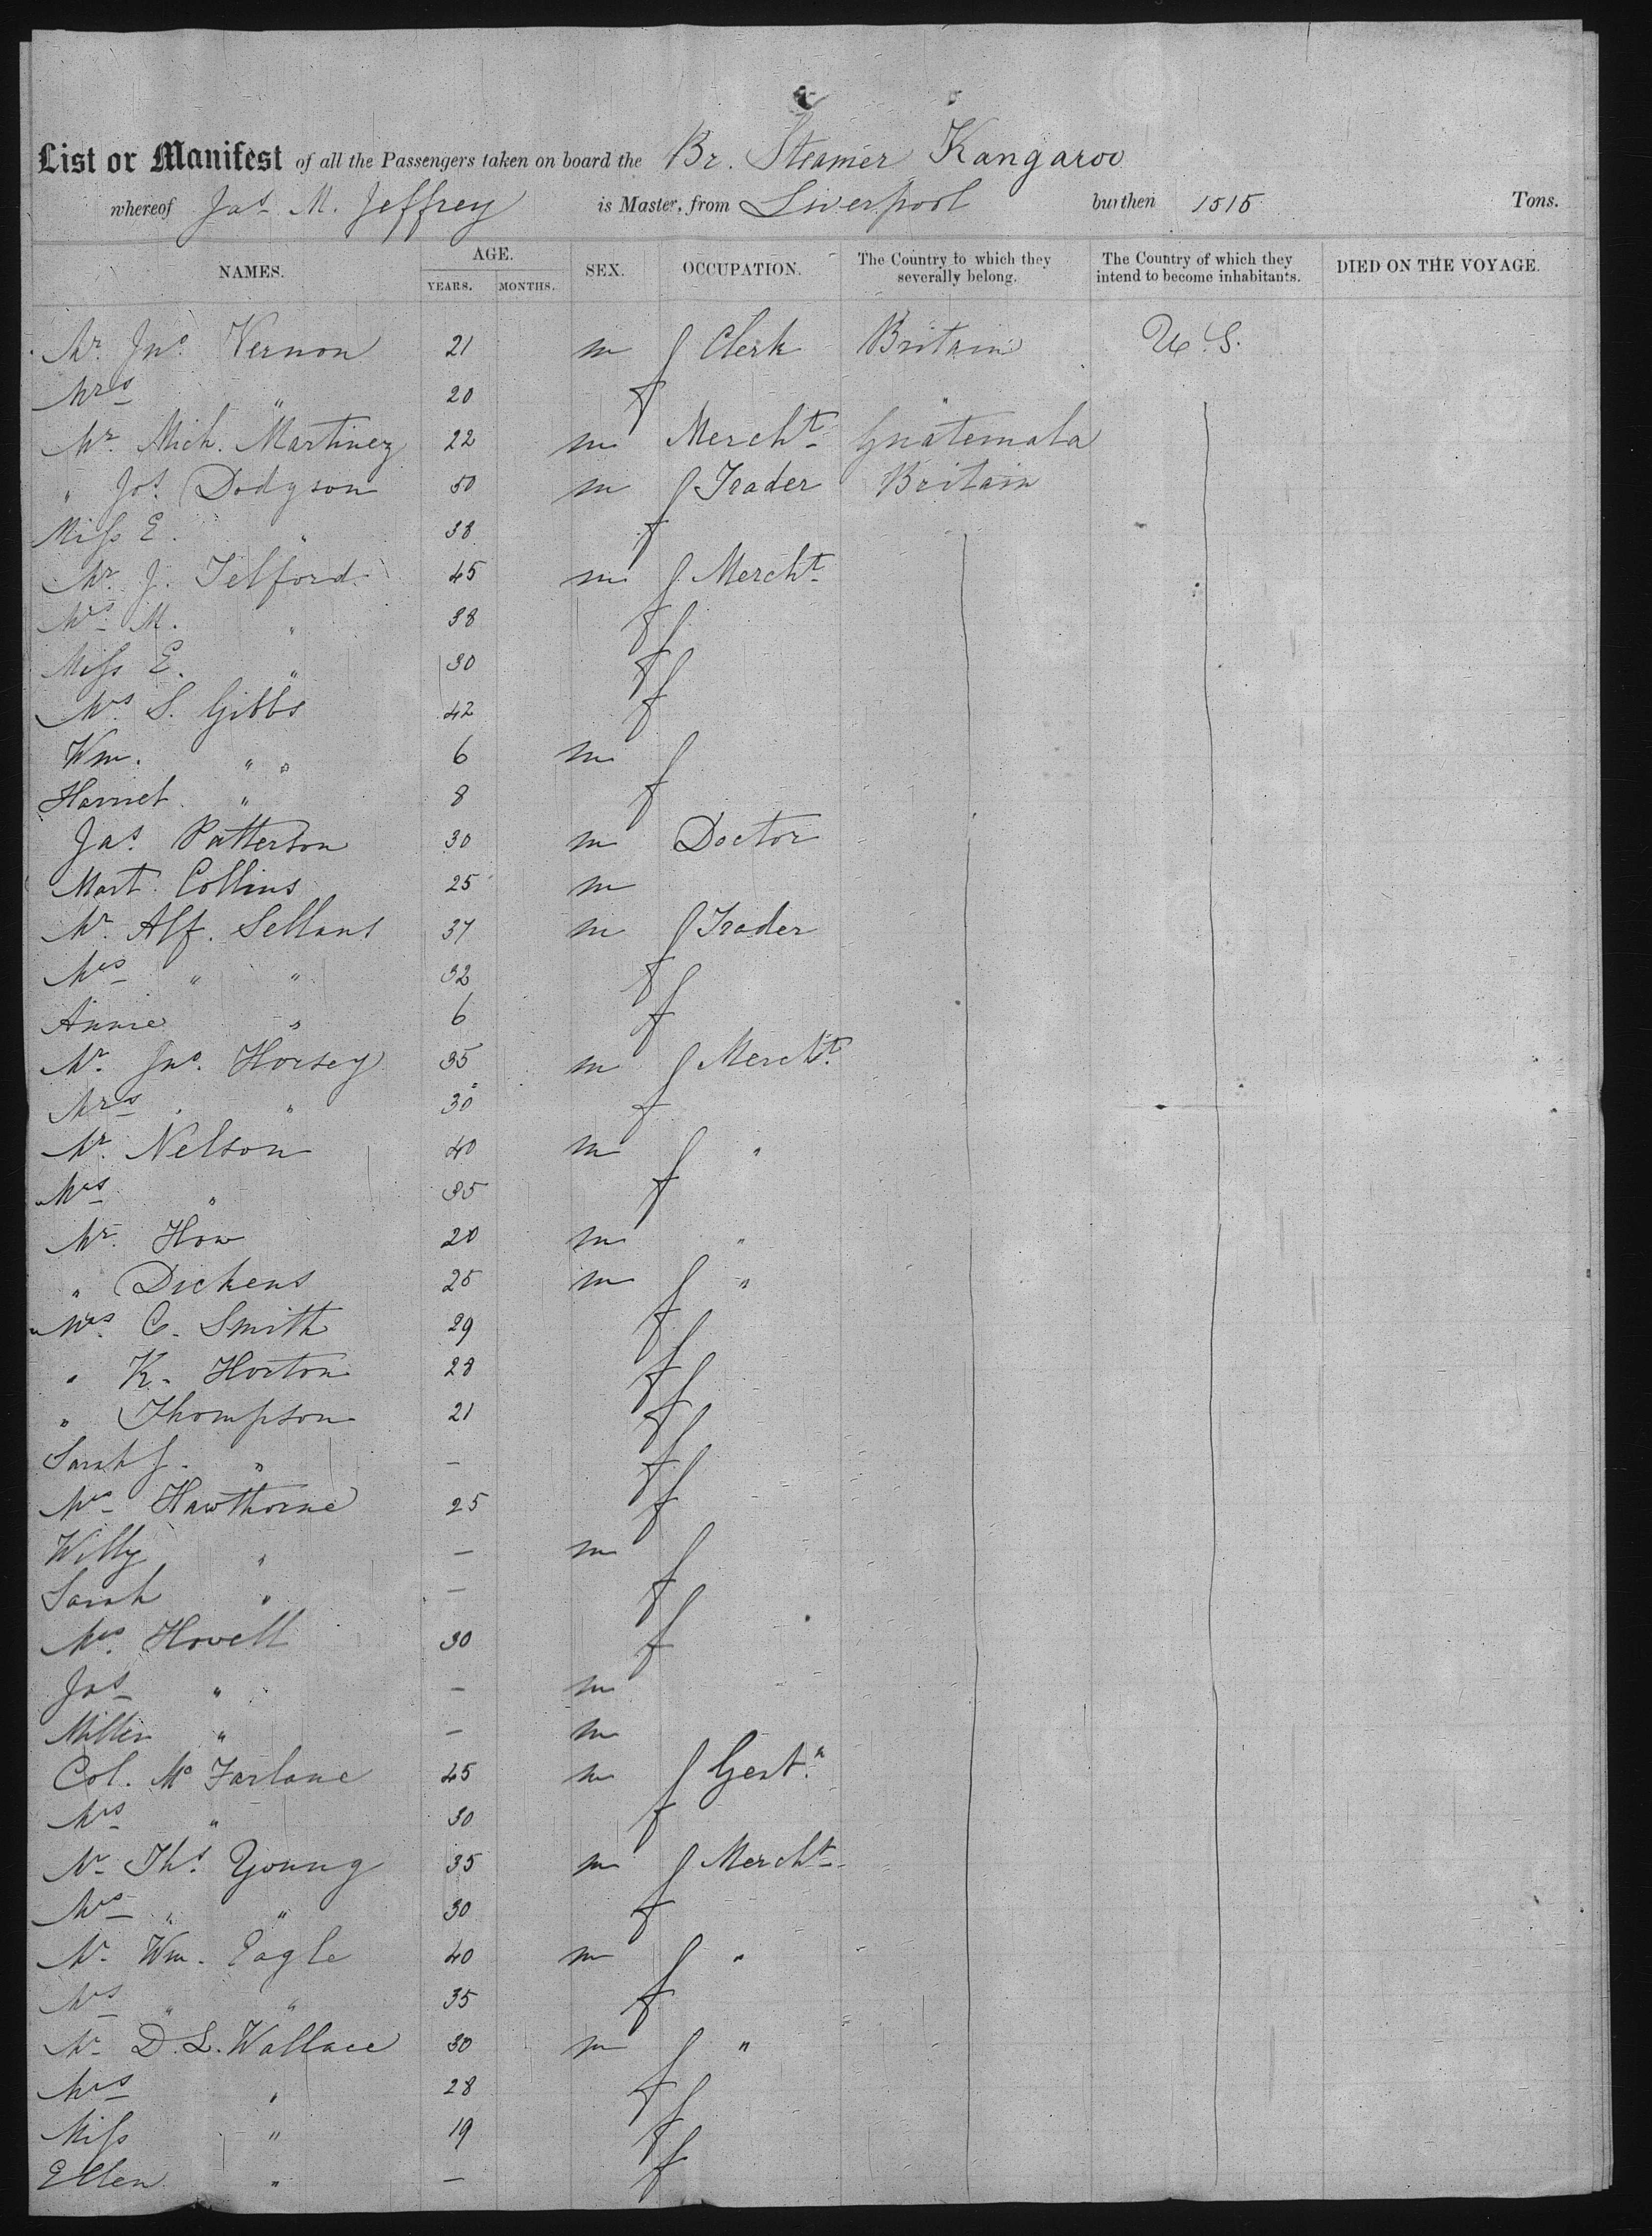 List or Manifest of all the Passengers taken on board the Br. Steamer Kangaroo
whereof Jas. M. Jeffrey is Master, from Liverpool burthen 1515 Tons.
NAMES. AGE. YEARS. MONTHS. SEX. OCCUPATION. The Country to which they severally belong. The Country of which they intend to become inhabitants. DIED ON THE VOYAGE.
Mr. Jno. Vernon 21 m Clerk Britain U.S.
Mrs " 20 f "
Mr. Mich. Martinez 22 m Mercht. Guatemala
" Jos. Dodgson 50 m Trader Britain
Miss E. " 38 f
Mr. J. Telford 45 m Mercht.
Mrs. M. " 38 f
Miss E. " 30 f
Mrs. S. Gibbs 42 f
Wm. " " 6 m
Harriet " 8 f
Jas. Patterson 30 m Doctor
Mart. Collins 25 m
Mr. Alf. Sellans 37 m Trader
Mrs " " 32 f
Annie " 6 f
Mr. Jno. Horsey 35 m Mercht.
Mrs " " 30 f
Mr. Nelson 40 m "
Mrs " 35 f
Mr. How 20 m "
" Dickens 25 m "
Mrs. C. Smith 29 f
" K. Horton 28 f
" Thompson 21 f
Sarah J. " — f
Mrs. Hawthorne 25 f
Willy " — m
Sarah " — f
Mrs. Howell 30 f
Jas " — m
" — m
Col. Mc Farlane 45 m Gent.n
Mrs " 30 f
Mr. Ths. Young 35 m Mercht.
Mrs " " 30 f
Mr. Wm. Eagle 40 m "
Mrs " " 35 f
Mr. D. L. Wallace 30 m "
Mrs " 28 f
Miss " 19 f
Ellen " — f